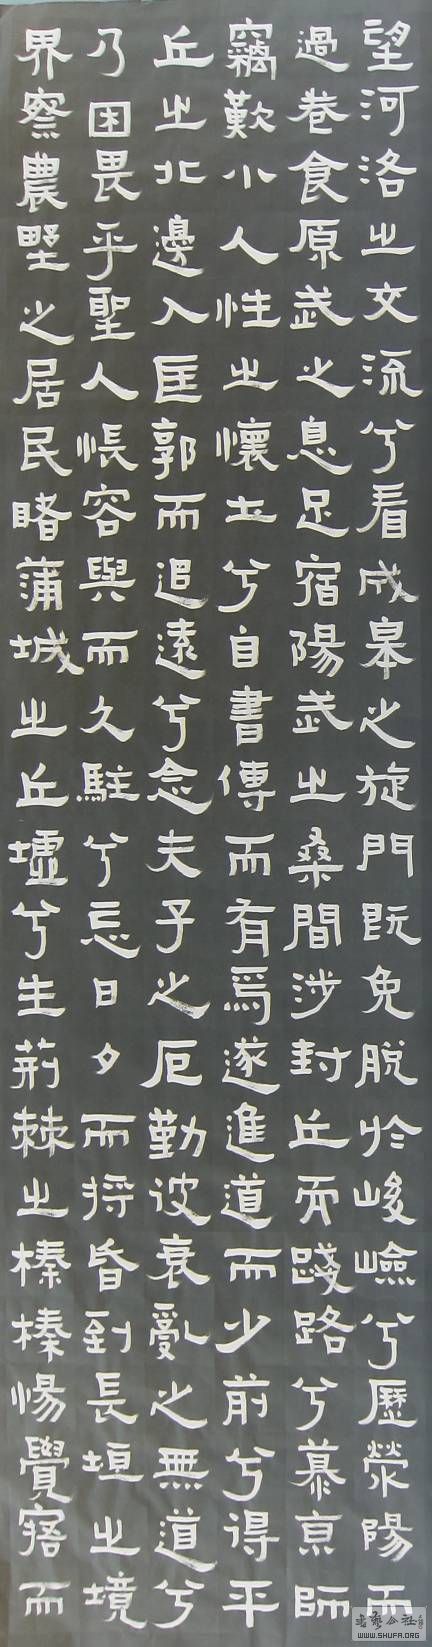 望河洛之交流兮看成皋之旋門既免脫於峻嶮兮歷滎陽而
過卷食原武之息足宿陽武之桑間涉封丘而踐路兮慕京師
竊歎小人性之懷土兮自書傳而有焉遂進道而少前兮得平
丘之北邊入匡郭而追遠兮念夫子之厄勤彼衰亂之無道兮
乃困畏乎聖人悵容與而久駐兮忘日夕而将昏到長垣之境
界察農野之居民睹蒲城之丘墟兮生荊棘之榛榛惕覺寤而
WWW.SHUFA.ORG